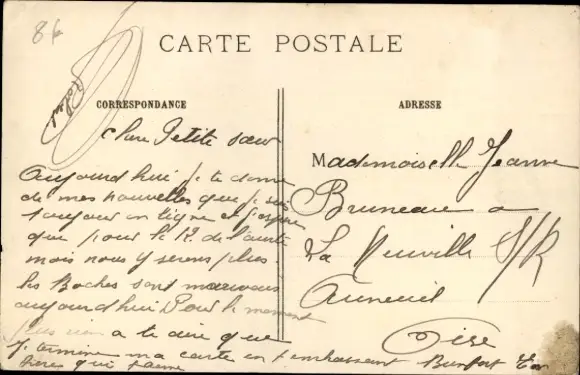 86
CARTE POSTALE
CORRESPONDANCE
ADRESSE
chere Petite sœur
Aujourd hui je te donne
de mes nouvelles que je suis
toujour en ligne et j'espere
que pour le de l'autre
mois nous y serons plus
les Boches sont mauvais
aujourd hui Pour le moment
plus rien a te dire que
je termine ma carte en t embrassant Bien fort Ton
frere qui t'aime
Mademoiselle Jeanne
Bruneau a
La Neuville S/R
Auneuil
Oise